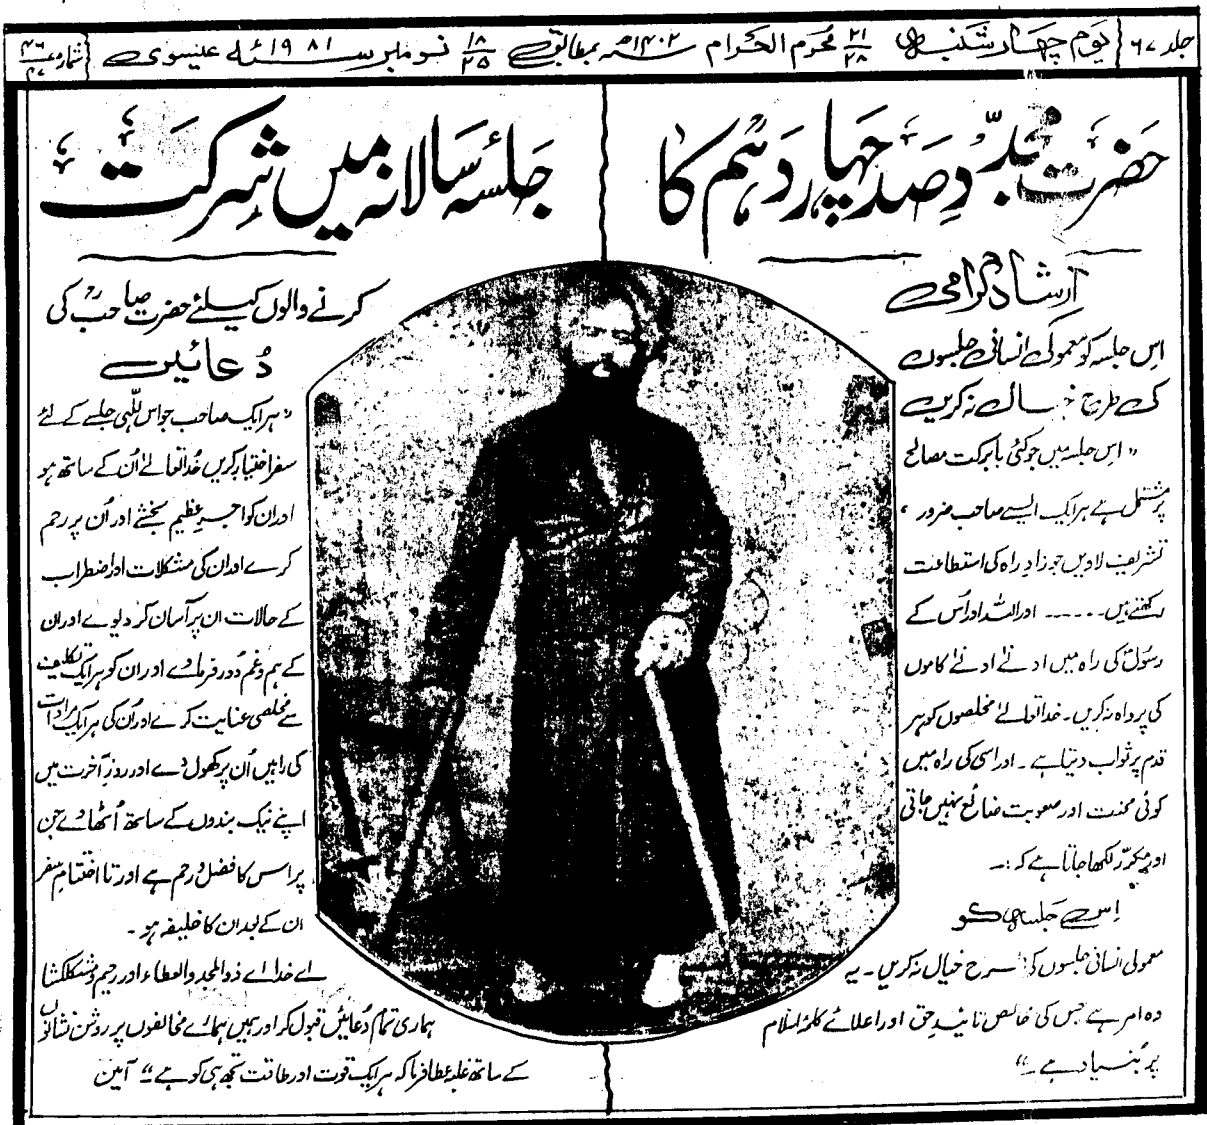 جلد ۶۷ یوم چہار شنبہ ۲۱/۲۸ محرم الحرام ۱۴۰۲ھ بمطابق ۱۸/۲۵ نومبر سنہ ۱۹۸۱ء عیسوی شمارہ ۴۶/۴۷
حضرت مجدّدِ صد چہاردہم کا
ارشاد گرامی
اِس جلسہ کو معمولی انسانی جلسوں
کی طرح خیال نہ کریں
”اس جلسہ میں جو کئی بابرکت مصالح
پر مشتمل ہے ہر ایک ایسے صاحب ضرور
تشریف لاویں جو زادِ راہ کی استطاعت
رکھتے ہیں ۔۔۔۔۔۔ اور اللہ اور اُس کے
رسولؐ کی راہ میں ادنےٰ ادنےٰ کاموں
کی پرواہ نہ کریں۔ خدا تعالےٰ مخلصوں کو ہر
قدم پر ثواب دیتا ہے۔ اور اسی کی راہ میں
کوئی محنت اور صعوبت ضائع نہیں جاتی
اور مکرّر لکھا جاتا ہے کہ :۔
اِس جلسہ کو
معمولی انسانی جلسوں کی طرح خیال نہ کریں۔ یہ
وہ امر ہے جس کی خالص تائیدِ حق اور اعلائے کلمۂ اسلام
پر بنیاد ہے۔“
جلسۂ سالانہ میں شرکت
کرنے والوں کیلئے حضرت صاحبؒ کی
دُعائیں
”ہر ایک صاحب جو اس للّٰہی جلسے کے لئے
سفر اختیار کریں خدا تعالےٰ اُن کے ساتھ ہو
اور ان کو اجرِ عظیم بخشے اور اُن پر رحم
کرے اور ان کی مشکلات اور اضطراب
کے حالات ان پر آسان کر دیوے اور ان
کے ہم و غم دُور فرماوے اور ان کو ہر ایک تکلیف
سے مخلصی عنایت کرے اور اُن کی ہر ایک مرادات
کی راہیں اُن پر کھول دے اور روزِ آخرت میں
اپنے نیک بندوں کے ساتھ اُٹھاوے جن
پر اس کا فضل و رحم ہے اور تا اختتامِ سفر
ان کے بعد ان کا خلیفہ ہو۔
اے خدا اے ذوالمجد والعطاء اور رحیم و مشکلکشا
ہماری تمام دُعائیں قبول کر اور ہمیں ہمارے مخالفوں پر روشن نشانوں
کے ساتھ غلبہ عطا فرما کہ ہر ایک قوت اور طاقت تجھ ہی کو ہے“ آمین